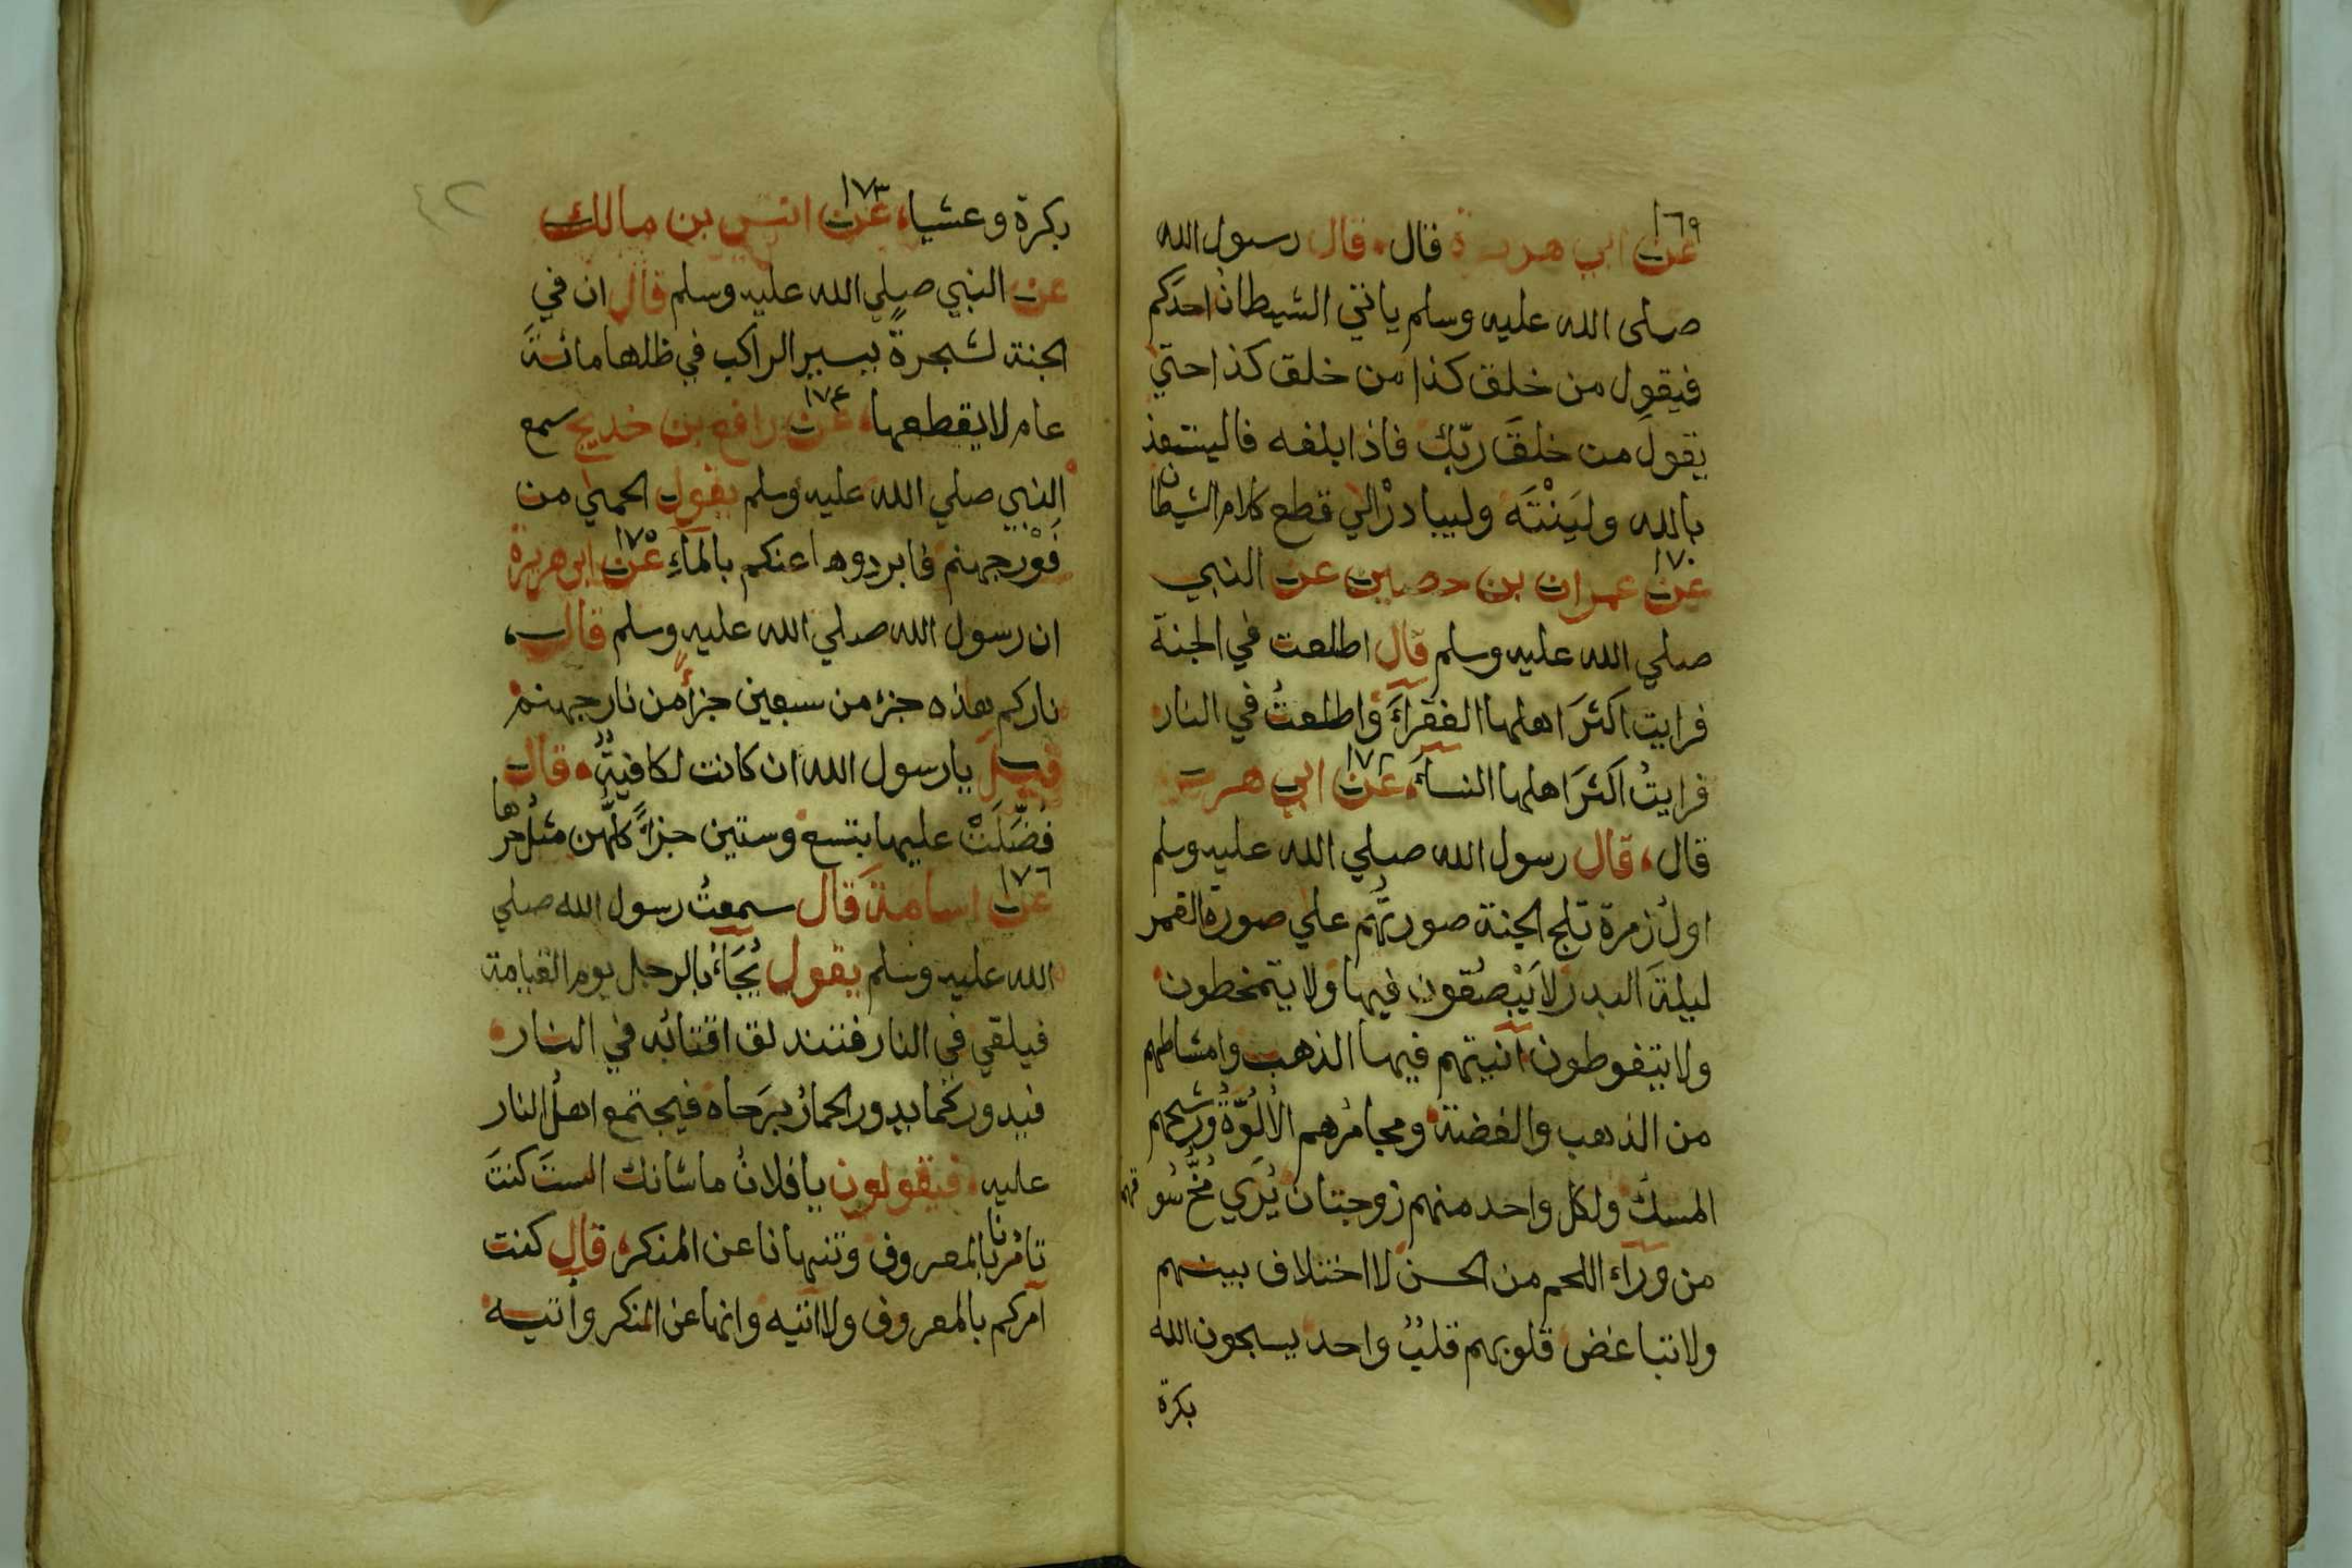 ١٦٩
عن ابي هريرة قال قال رسول الله
صلى الله عليه وسلم ياتي الشيطانُ احدَكم
فيقول من خلق كذا من خلق كذا حتي
يقولَ من خلقَ ربّك فاذا بلغه فاليستعذ
بالله وليَنْتَه وليبادرْ الي قطع كلام الشيطان
١٧٠
عن عمران بن حصين عن النبي
صلي الله عليه وسلم قال اطلعت في الجنة
فرايت اكثرَ اهلها الفقراءَ واطلعتُ في النار
فرايتُ اكثرَ اهلها النساءَ، عن ابي هريرة
قال، قال رسول الله صلي الله عليه وسلم
اولُ زمرة تلج الجنة صورتُهم علي صورة القمر
ليلةَ البدر لا يَبْصُقون فيها ولا يتمخطون
ولا يتغوطون آنيتهم فيها الذهب وامشاطهم
من الذهب والفضة ومجامرُهم الأُلوَّةُ ورشحهم
المسكُ ولكل واحد منهم زوجتان يُرَي مُخُّ سُوقهم
من ورآء اللحم من الحسن لا اختلاف بينهم
ولا تباغض قلوبهم قلبُ واحد يسبحون الله
بكرة
٤٢
بكرة وعشيا، عن انس بن مالك ١٧٣
عن النبي صلي الله عليه وسلم قال ان في
الجنة لشجرةً يسير الراكب في ظلها مائةَ
عام لا يقطعها، عن رافع بن خديج سمع ١٧٤
النبي صلي الله عليه وسلم يقول الحمي من
فَوْر جهنم فابردوها عنكم بالمآءِ عن ابي هريرة ١٧٥
ان رسول الله صلي الله عليه وسلم قال،
ناركم هذه جزء من سبعين جزأً من نار جهنم
قيل يا رسول الله ان كانت لكافيةٌ، قال
فُضِّلَتْ عليها بتسع وستين جزأً كلُّهن مثلُ حرها
عن اسامة قال سمعتُ رسول الله صلي ١٧٦
الله عليه وسلم يقول يُجَآءُ بالرجل يوم القيامة
فيلقي في النار فتندلق اقتابُه في النار
فيدور كما يدور الحمارُ برَحاه فيجتمع اهلُ النار
عليه فيقولون يا فلانُ ما شانك الستَ كنتَ
تامُرنا بالمعروف وتنهانا عن المنكر، قال كنت
آمركم بالمعروف ولا آتيه وانهاكم عن المنكر وآتيه